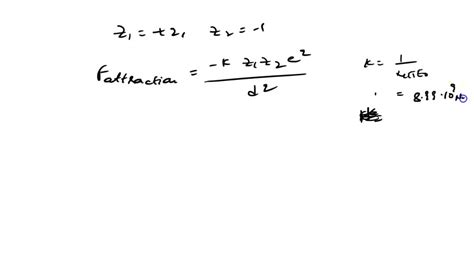 z₁ = +2, z₂ = -1
F attraction = -k z₁ z₂ e² / d²
k = 1 / 4πε₀
= 8.99 · 10⁹ N